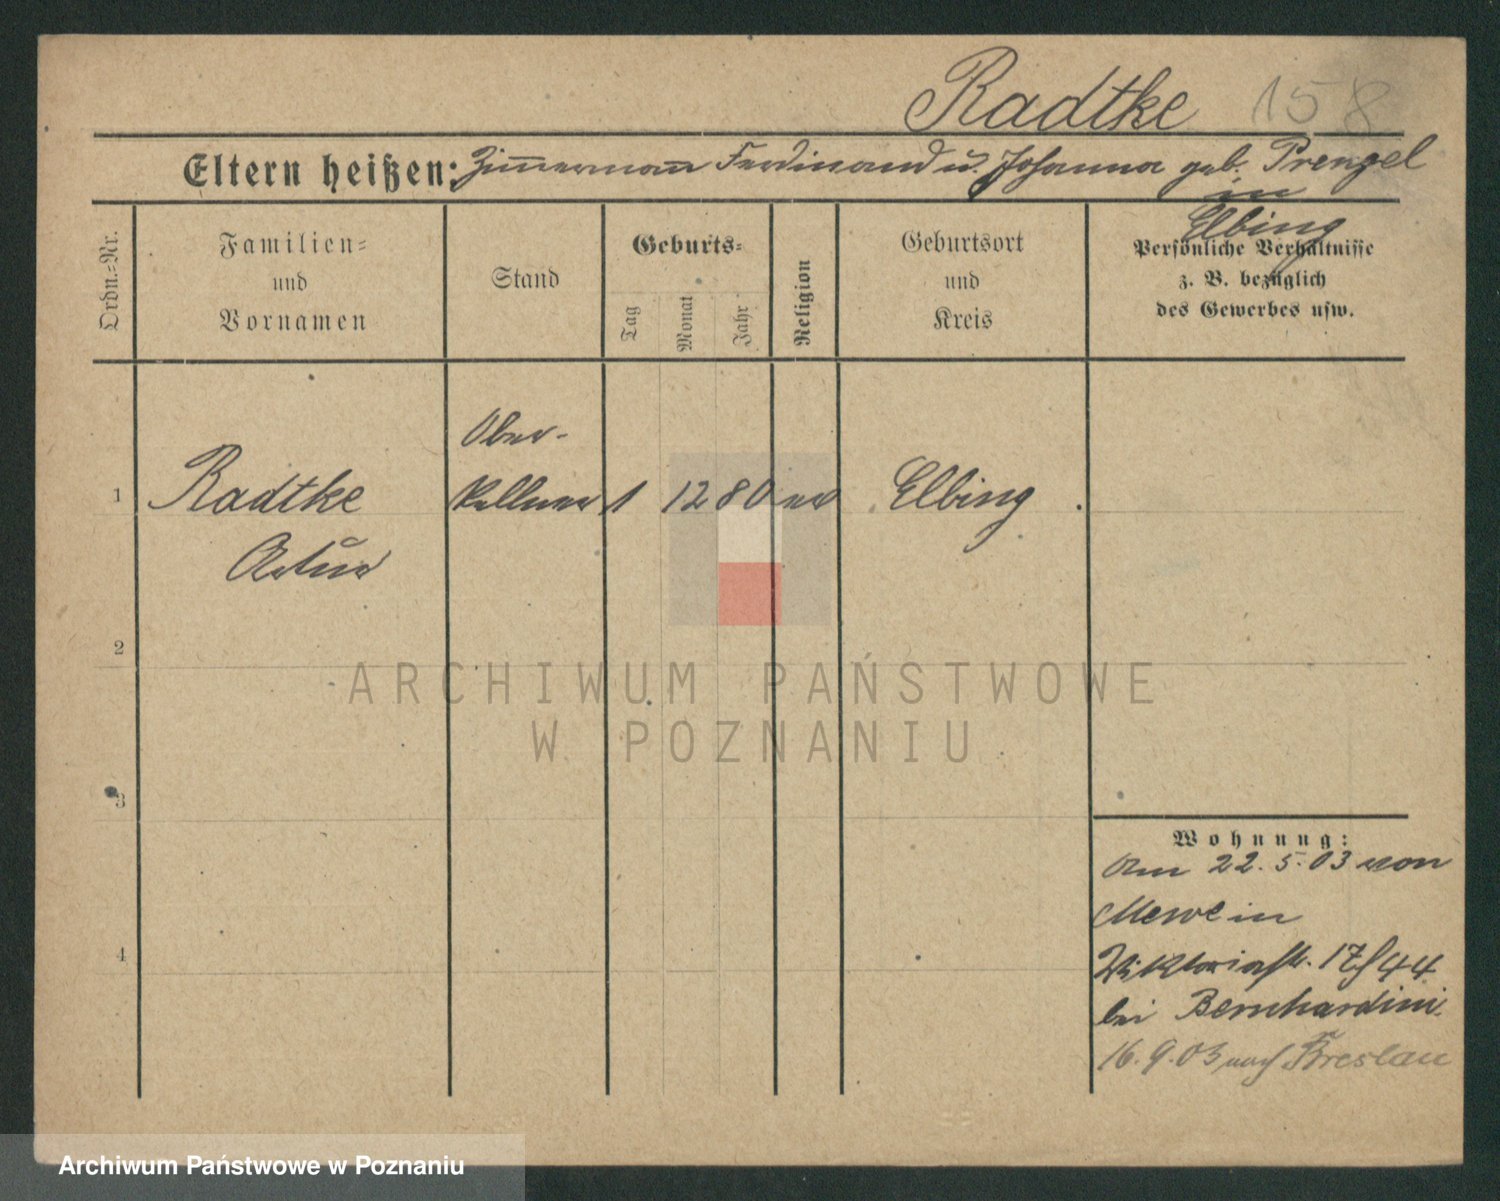 Radtke 158
Eltern heißen: Zimmermann Ferdinand u. Johanna geb. Prengel
in
Elbing
Ordn.-Nr.
Familien-
und
Vornamen
Stand
Geburts-
Tag
Monat
Jahr
Religion
Geburtsort
und
Kreis
Persönliche Verhältnisse
z. B. bezüglich
des Gewerbes usw.
Ober-
1 Radtke kellner 1 12 80 ev Elbing.
Artur
2
ARCHIWUM PAŃSTWOWE
W POZNANIU
3
Wohnung:
Am 22. 5. 03 von
Mewe in
4
Viktoriastr. 17/44
bei Bernhardini.
16. 9. 03 nach Breslau
Archiwum Państwowe w Poznaniu